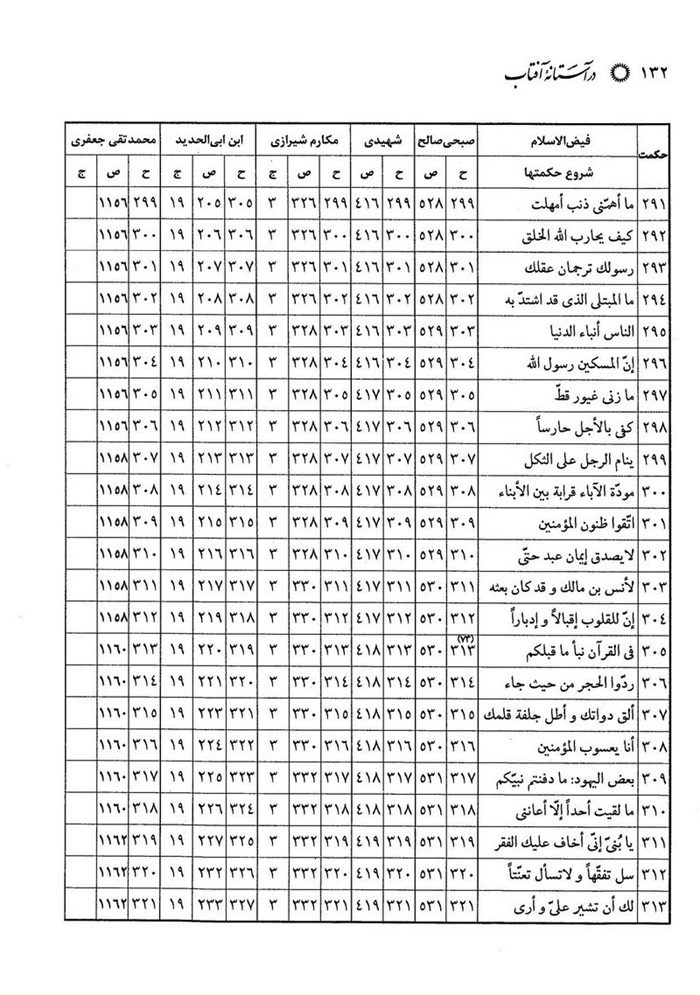 ۱۳۲ در آستانهٔ آفتاب
حکمت فیض‌الاسلام صبحی صالح شهیدی مکارم شیرازی ابن ابی‌الحدید محمدتقی جعفری
شروع حکمتها ح ص ح ص ح ص ج ح ص ج ح ص ج
۲۹۱ ما أهمّنی ذنب أمهلت ۲۹۹ ۵۲۸ ۲۹۹ ٤۱٦ ۲۹۹ ۳۲٦ ۳ ۳۰۵ ۲۰۵ ۱۹ ۲۹۹ ۱۱۵٦
۲۹۲ کیف یحارب الله الخلق ۳۰۰ ۵۲۸ ۳۰۰ ٤۱٦ ۳۰۰ ۳۲٦ ۳ ۳۰٦ ۲۰٦ ۱۹ ۳۰۰ ۱۱۵٦
۲۹۳ رسولك ترجمان عقلك ۳۰۱ ۵۲۸ ۳۰۱ ٤۱٦ ۳۰۱ ۳۲٦ ۳ ۳۰۷ ۲۰۷ ۱۹ ۳۰۱ ۱۱۵٦
۲۹٤ ما المبتلی الذی قد اشتدّ به ۳۰۲ ۵۲۸ ۳۰۲ ٤۱٦ ۳۰۲ ۳۲٦ ۳ ۳۰۸ ۲۰۸ ۱۹ ۳۰۲ ۱۱۵٦
۲۹۵ الناس أبناء الدنیا ۳۰۳ ۵۲۹ ۳۰۳ ٤۱٦ ۳۰۳ ۳۲۸ ۳ ۳۰۹ ۲۰۹ ۱۹ ۳۰۳ ۱۱۵٦
۲۹٦ إنّ المسکین رسول الله ۳۰٤ ۵۲۹ ۳۰٤ ٤۱٦ ۳۰٤ ۳۲۸ ۳ ۳۱۰ ۲۱۰ ۱۹ ۳۰٤ ۱۱۵٦
۲۹۷ ما زنی غیور قطّ ۳۰۵ ۵۲۹ ۳۰۵ ٤۱۷ ۳۰۵ ۳۲۸ ۳ ۳۱۱ ۲۱۱ ۱۹ ۳۰۵ ۱۱۵٦
۲۹۸ کفی بالأجل حارساً ۳۰٦ ۵۲۹ ۳۰٦ ٤۱۷ ۳۰٦ ۳۲۸ ۳ ۳۱۲ ۲۱۲ ۱۹ ۳۰٦ ۱۱۵٦
۲۹۹ ینام الرجل علی الثکل ۳۰۷ ۵۲۹ ۳۰۷ ٤۱۷ ۳۰۷ ۳۲۸ ۳ ۳۱۳ ۲۱۳ ۱۹ ۳۰۷ ۱۱۵۸
۳۰۰ مودّة الآباء قرابة بین الأبناء ۳۰۸ ۵۲۹ ۳۰۸ ٤۱۷ ۳۰۸ ۳۲۸ ۳ ۳۱٤ ۲۱٤ ۱۹ ۳۰۸ ۱۱۵۸
۳۰۱ اتّقوا ظنون المؤمنین ۳۰۹ ۵۲۹ ۳۰۹ ٤۱۷ ۳۰۹ ۳۲۸ ۳ ۳۱۵ ۲۱۵ ۱۹ ۳۰۹ ۱۱۵۸
۳۰۲ لا یصدق إیمان عبد حتّی ۳۱۰ ۵۲۹ ۳۱۰ ٤۱۷ ۳۱۰ ۳۲۸ ۳ ۳۱٦ ۲۱٦ ۱۹ ۳۱۰ ۱۱۵۸
۳۰۳ لأنس بن مالك و قد کان بعثه ۳۱۱ ۵۳۰ ۳۱۱ ٤۱۷ ۳۱۱ ۳۳۰ ۳ ۳۱۷ ۲۱۷ ۱۹ ۳۱۱ ۱۱۵۸
۳۰٤ إنّ للقلوب إقبالاً و إدباراً ۳۱۲ ۵۳۰ ۳۱۲ ٤۱۷ ۳۱۲ ۳۳۰ ۳ ۳۱۸ ۲۱۹ ۱۹ ۳۱۲ ۱۱۵۸
۳۰۵ فی القرآن نبأ ما قبلکم ۳۱۳(۷۳) ۵۳۰ ۳۱۳ ٤۱۸ ۳۱۳ ۳۳۰ ۳ ۳۱۹ ۲۲۰ ۱۹ ۳۱۳ ۱۱٦۰
۳۰٦ ردّوا الحجر من حیث جاء ۳۱٤ ۵۳۰ ۳۱٤ ٤۱۸ ۳۱٤ ۳۳۰ ۳ ۳۲۰ ۲۲۱ ۱۹ ۳۱٤ ۱۱٦۰
۳۰۷ ألق دواتك و أطل جلفة قلمك ۳۱۵ ۵۳۰ ۳۱۵ ٤۱۸ ۳۱۵ ۳۳۰ ۳ ۳۲۱ ۲۲۳ ۱۹ ۳۱۵ ۱۱٦۰
۳۰۸ أنا یعسوب المؤمنین ۳۱٦ ۵۳۰ ۳۱٦ ٤۱۸ ۳۱٦ ۳۳۰ ۳ ۳۲۲ ۲۲٤ ۱۹ ۳۱٦ ۱۱٦۰
۳۰۹ بعض الیهود: ما دفنتم نبیّکم ۳۱۷ ۵۳۱ ۳۱۷ ٤۱۸ ۳۱۷ ۳۳۲ ۳ ۳۲۳ ۲۲۵ ۱۹ ۳۱۷ ۱۱٦۰
۳۱۰ ما لقیت أحداً إلّا أعاننی ۳۱۸ ۵۳۱ ۳۱۸ ٤۱۸ ۳۱۸ ۳۳۲ ۳ ۳۲٤ ۲۲٦ ۱۹ ۳۱۸ ۱۱٦۰
۳۱۱ یا بُنیّ إنّی أخاف علیك الفقر ۳۱۹ ۵۳۱ ۳۱۹ ٤۱۹ ۳۱۹ ۳۳۲ ۳ ۳۲۵ ۲۲۷ ۱۹ ۳۱۹ ۱۱٦۲
۳۱۲ سل تفقّهاً و لاتسأل تعنّتاً ۳۲۰ ۵۳۱ ۳۲۰ ٤۱۹ ۳۲۰ ۳۳۲ ۳ ۳۲٦ ۲۳۲ ۱۹ ۳۲۰ ۱۱٦۲
۳۱۳ لك أن تشیر علیّ و أری ۳۲۱ ۵۳۱ ۳۲۱ ٤۱۹ ۳۲۱ ۳۳۲ ۳ ۳۲۷ ۲۳۳ ۱۹ ۳۲۱ ۱۱٦۲